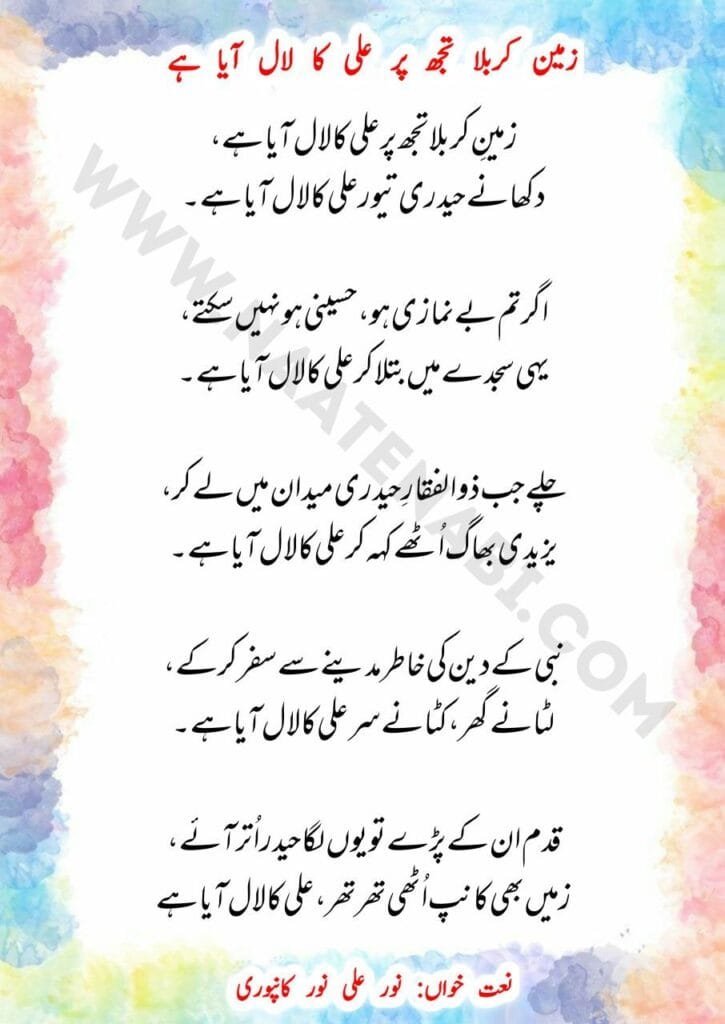 زمین کربلا تجھ پر علی کا لال آیا ہے
زمینِ کربلا تجھ پر علی کا لال آیا ہے،
دکھانے حیدری تیور علی کا لال آیا ہے۔
اگر تم بے نمازی ہو، حسینی ہو نہیں سکتے،
یہی سجدے میں بتلا کر علی کا لال آیا ہے۔
چلے جب ذوالفقارِ حیدری میدان میں لے کر،
یزیدی بھاگ اُٹھے کہہ کر علی کا لال آیا ہے۔
نبی کے دین کی خاطر مدینے سے سفر کر کے،
لٹانے گھر، کٹانے سر علی کا لال آیا ہے۔
قدم ان کے پڑے تو یوں لگا حیدر اُتر آئے،
زمیں بھی کانپ اُٹھی تھر تھر، علی کا لال آیا ہے
نعت خواں: نور علی نور کانپوری
WWW.NAATENABI.COM